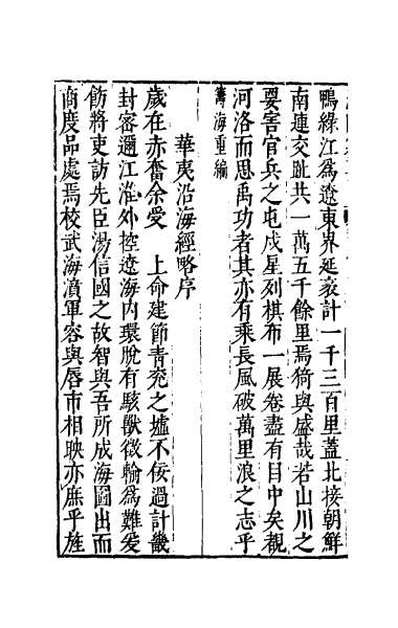 鴨綠江爲遼東界延袤計一千三百里蓋北接朝鮮
南連交趾共一萬五千餘里焉猗與盛哉若山川之
要害官兵之屯戍星列棋布一展卷盡有目中矣覩
河洛而思禹功者其亦有乘長風破萬里浪之志乎
籌海重編
華夷沿海經略序
歲在赤奮余受 上命建節青兖之墟不佞過計畿
封密邇江淮外控遼海內環脫有駭獸微輸爲難爰
飭將吏訪先臣湯信國之故智與吾所成海圖出而
商度品處焉校武海濆軍容與蜃市相映亦庶乎旌